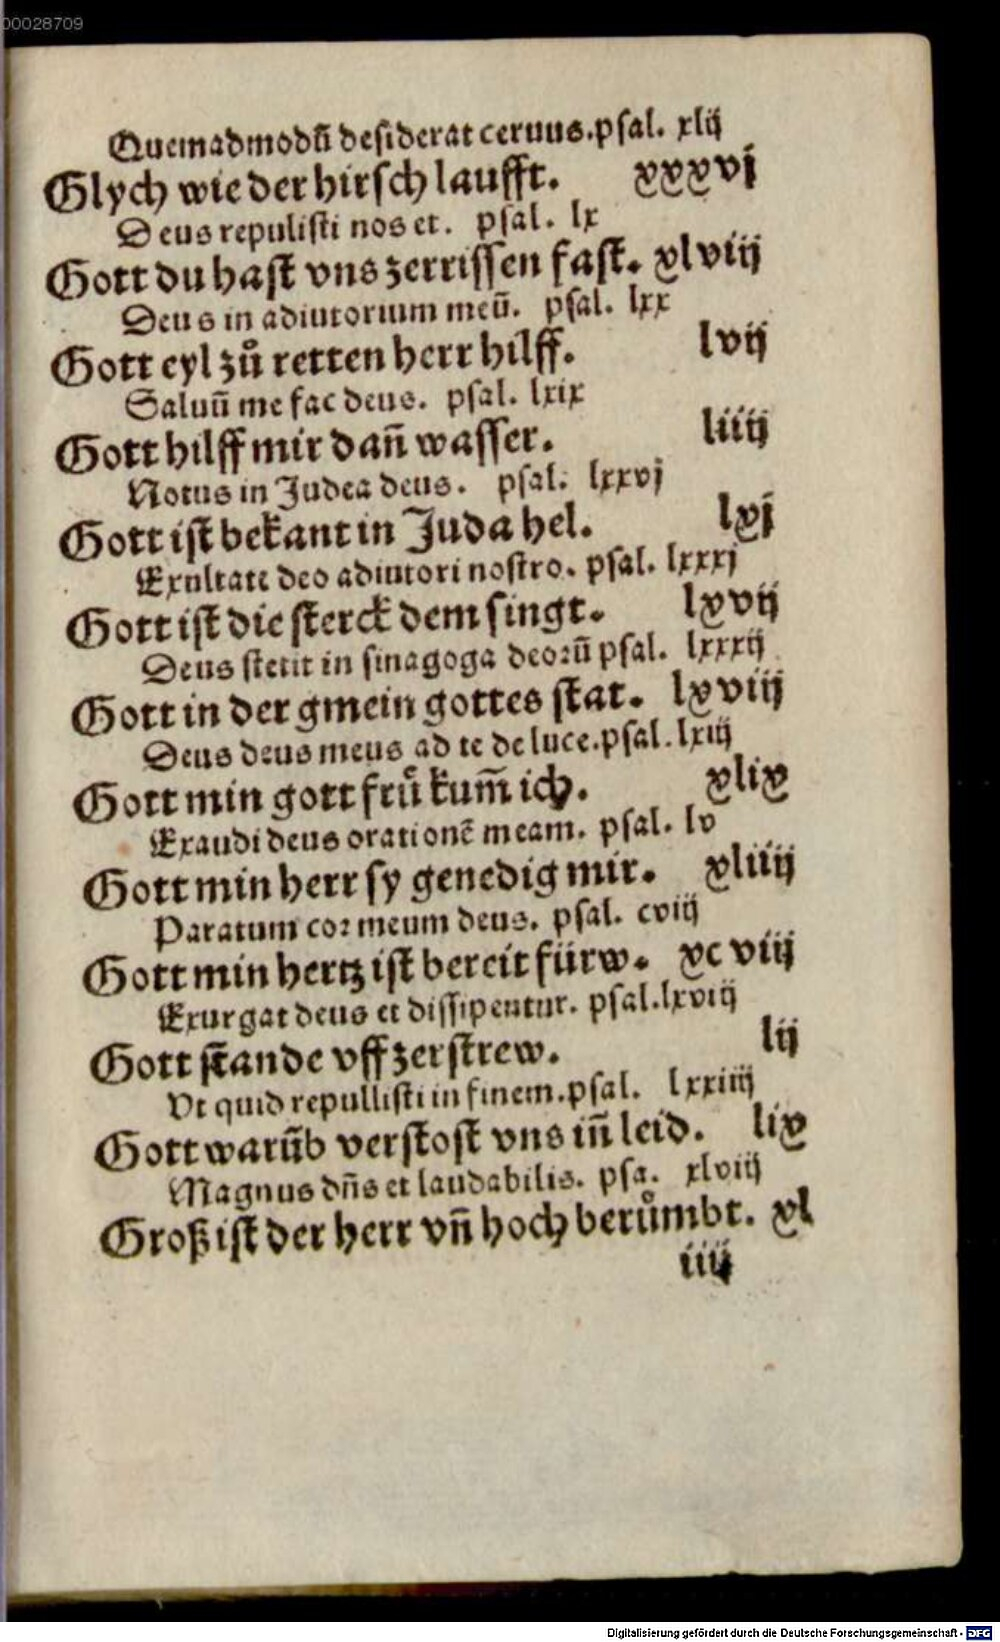 00028709
Quemadmodū desiderat ceruus.psal. xlij
Glych wie der hirsch laufft. xxxvj
Deus repulisti nos et. psal. lx
Gott du hast vns zerrissen fast. xlviij
Deus in adiutorium meū. psal. lxx
Gott eyl zů retten herr hilff. lvij
Saluū me fac deus. psal. lxix
Gott hilff mir dañ wasser. liiij
Notus in Judea deus. psal. lxxvj
Gott ist bekant in Juda hel. lxj
Exultate deo adiutori nostro. psal. lxxxj
Gott ist die sterck dem singt. lxvij
Deus stetit in sinagoga deorū psal. lxxxij
Gott in der gmein gottes stat. lxviij
Deus deus meus ad te de luce.psal.lxiij
Gott min gott frů kum̄ ich. xlix
Exaudi deus orationē meam. psal. lv
Gott min herr sy genedig mir. xliiij
Paratum cor meum deus. psal. cviij
Gott min hertz ist bereit fürw. xcviij
Exurgat deus et dissipentur. psal.lxviij
Gott stande vff zerstrew. lij
Vt quid repullisti in finem.psal. lxxiiij
Gott warūb verstost vns iñ leid. lix
Magnus dñs et laudabilis. psa. xlviij
Groß ist der herr vñ hoch berůmbt. xl
iiij
Digitalisierung gefördert durch die Deutsche Forschungsgemeinschaft - DFG